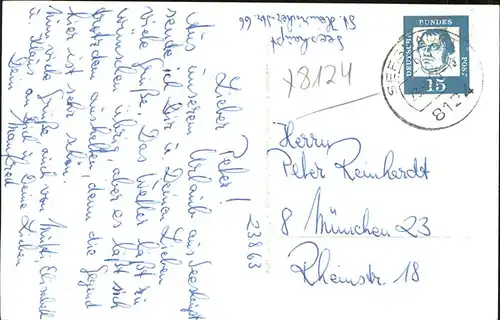 Seeshaupt
St. Heinricher-Str. 66
Lieber Peter!
Aus unserem Urlaub aus Seeshaupt
sende ich Dir u. Deinen Lieben
viele Grüße. Das Wetter läßt zu
wünschen übrig, aber es läßt sich
trotzdem aushalten, denn die Gegend
hier ist sehr schön.
Nun viele Grüße auch von Mutti, Elisabeth
u. Klaus an Dich u. Deine Lieben
Dein Manfred
X8124
23863
DEUTSCHE BUNDESPOST
15
SEES
8124
Herrn
Peter Reinhardt
8 München 23
Rheinstr. 18